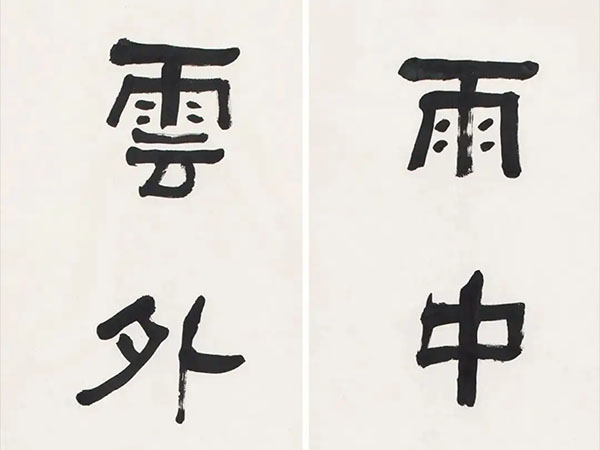 雨中
雲外